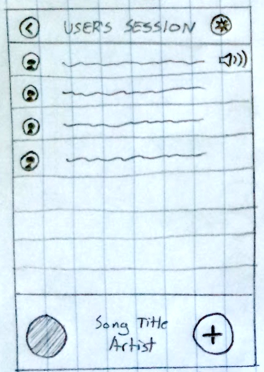 USER'S SESSION
Song Title
Artist